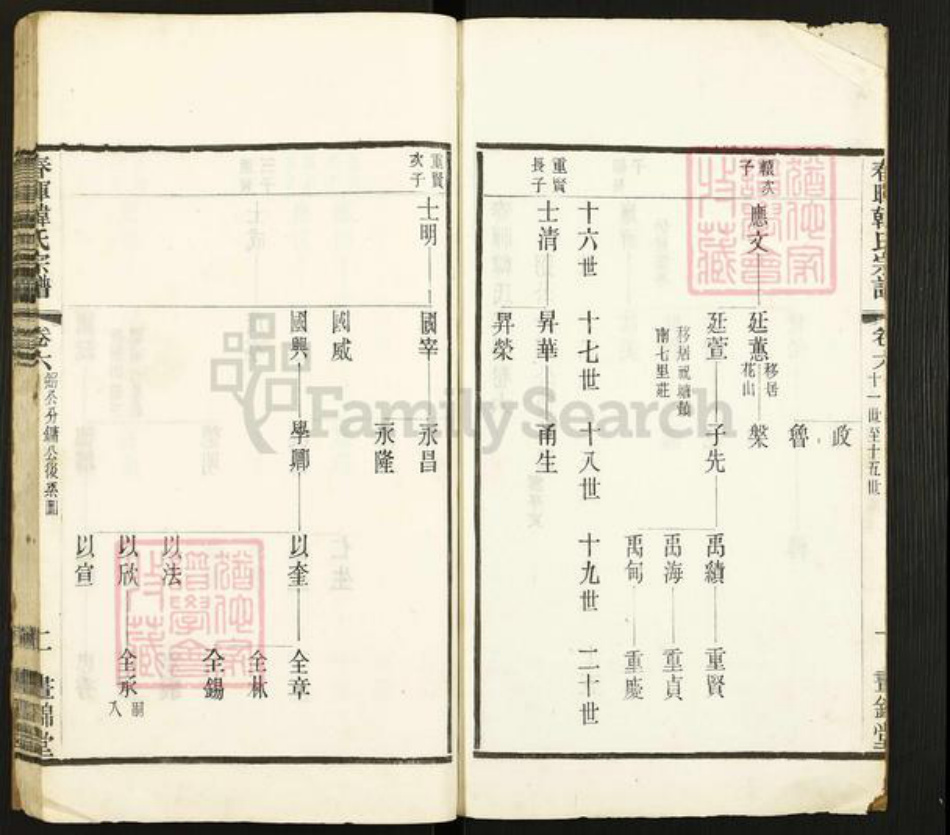 春暉韓氏宗譜
卷六
十一世至十五世
一
晝錦堂
政
魯
槃
穎次子
應文
延蕙
移居花山
延萱
子先
禹績
重賢
禹海
重貞
禹甸
重慶
南七里莊
十六世 十七世 十八世 十九世 二十世
重賢長子
士清
昇華
甬生
昇榮
重賢次子
士明
國宰
永昌
永隆
國威
國興
學卿
以奎
全章
全林
全錫
以法
以欣
全承
嗣入
以宣
春暉韓氏宗譜
卷六
二
晝錦堂
FamilySearch